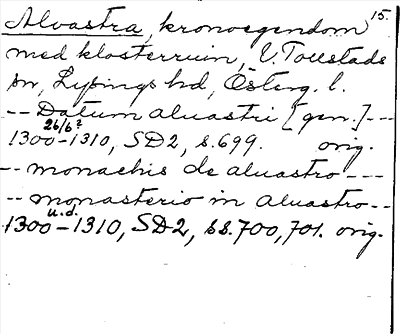 15.
Alvastra, kronoegendom
med klosterruin, V. Tollstads
sn, Lysings hd, Österg. l.
-- Datum aluastri [gen.] ---
26/6 ?
1300-1310, SD2, s. 699. orig.
-- monachis de aluastro ---
-- monasterio in aluastro --
u.d.
1300-1310, SD2, ss. 700, 701. orig.